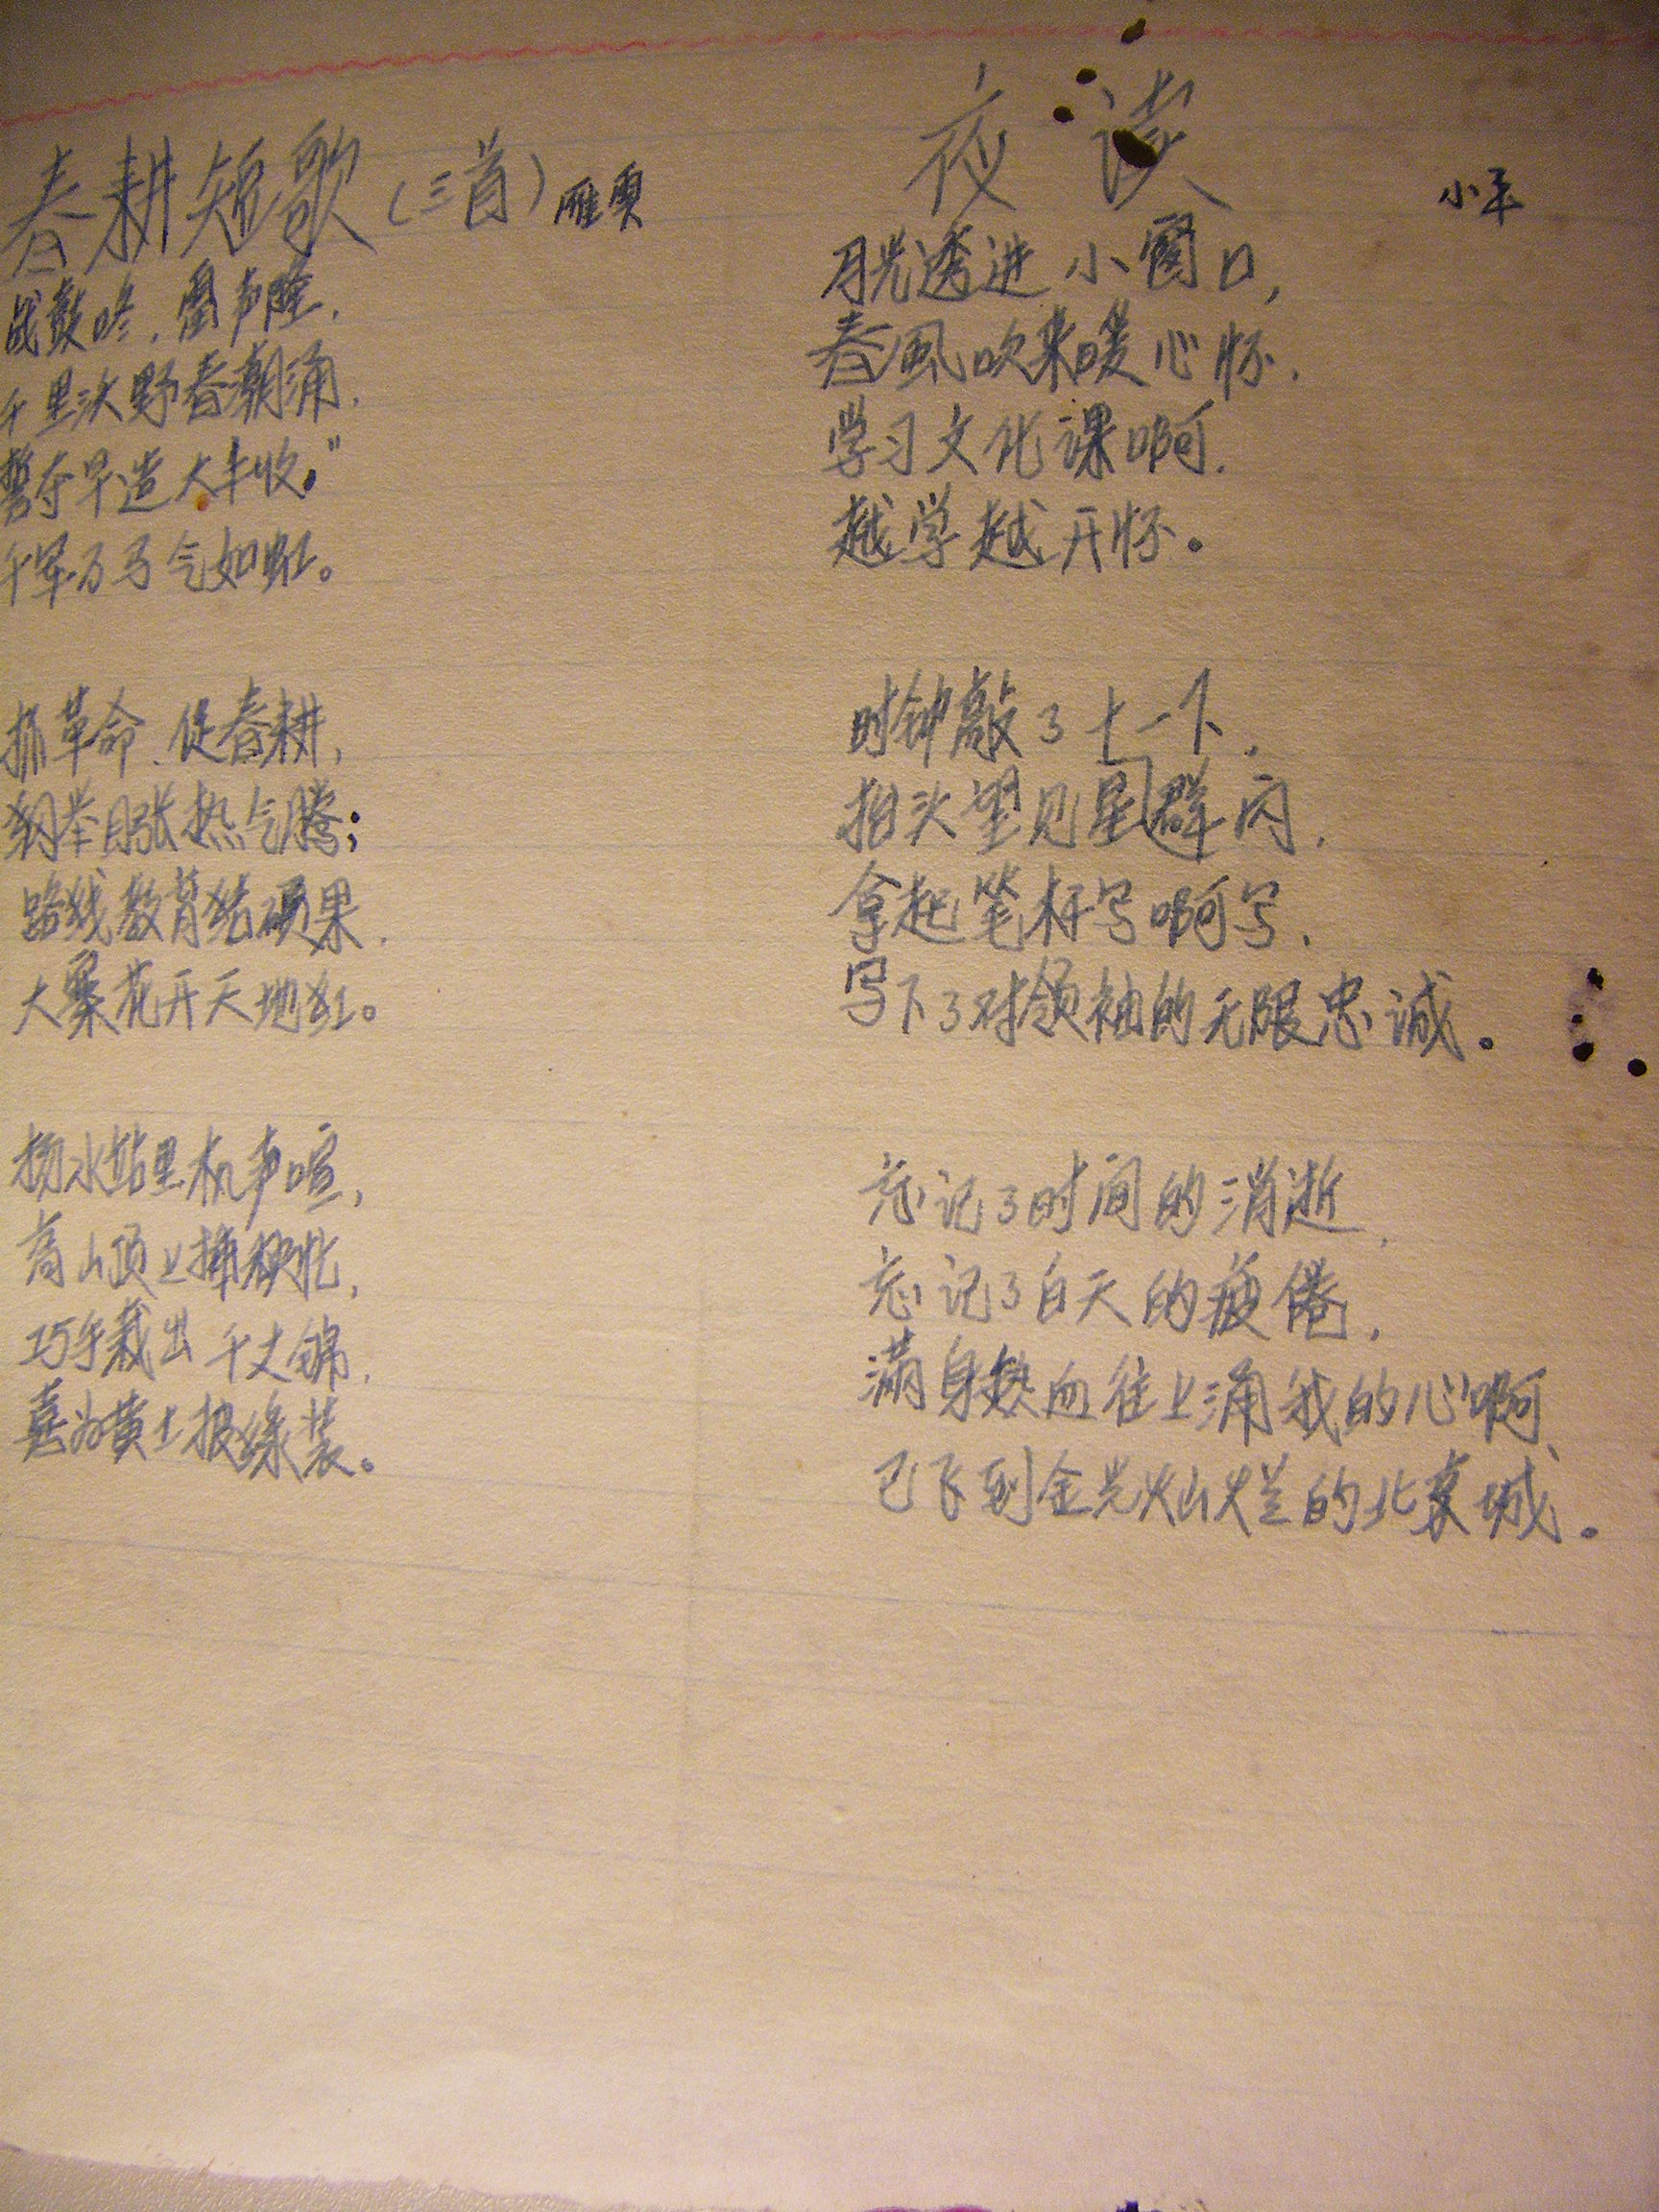 春耕短歌（三首）
战鼓咚，雷声隆，
千里沃野春潮涌，
誓夺早造大丰收，"
千军万马气如虹。
抓革命、促春耕，
纲举目张热气腾；
路线教育结硕果，
大寨花开天地红。
扬水站里机声喧，
高山顶上插秧忙，
巧手裁出千丈锦，
喜为黄土披绿装。
夜读
小平
月光透进小窗口，
春風吹来暖心怀，
学习文化课啊，
越学越开怀。
时钟敲了十一下，
抬头望见星群闪，
拿起笔杆写啊写，
写下了对领袖的无限忠诚。
忘记了时间的消逝，
忘记了白天的疲倦，
满身热血往上涌我的心啊、
已飞到金光灿烂的北京城。